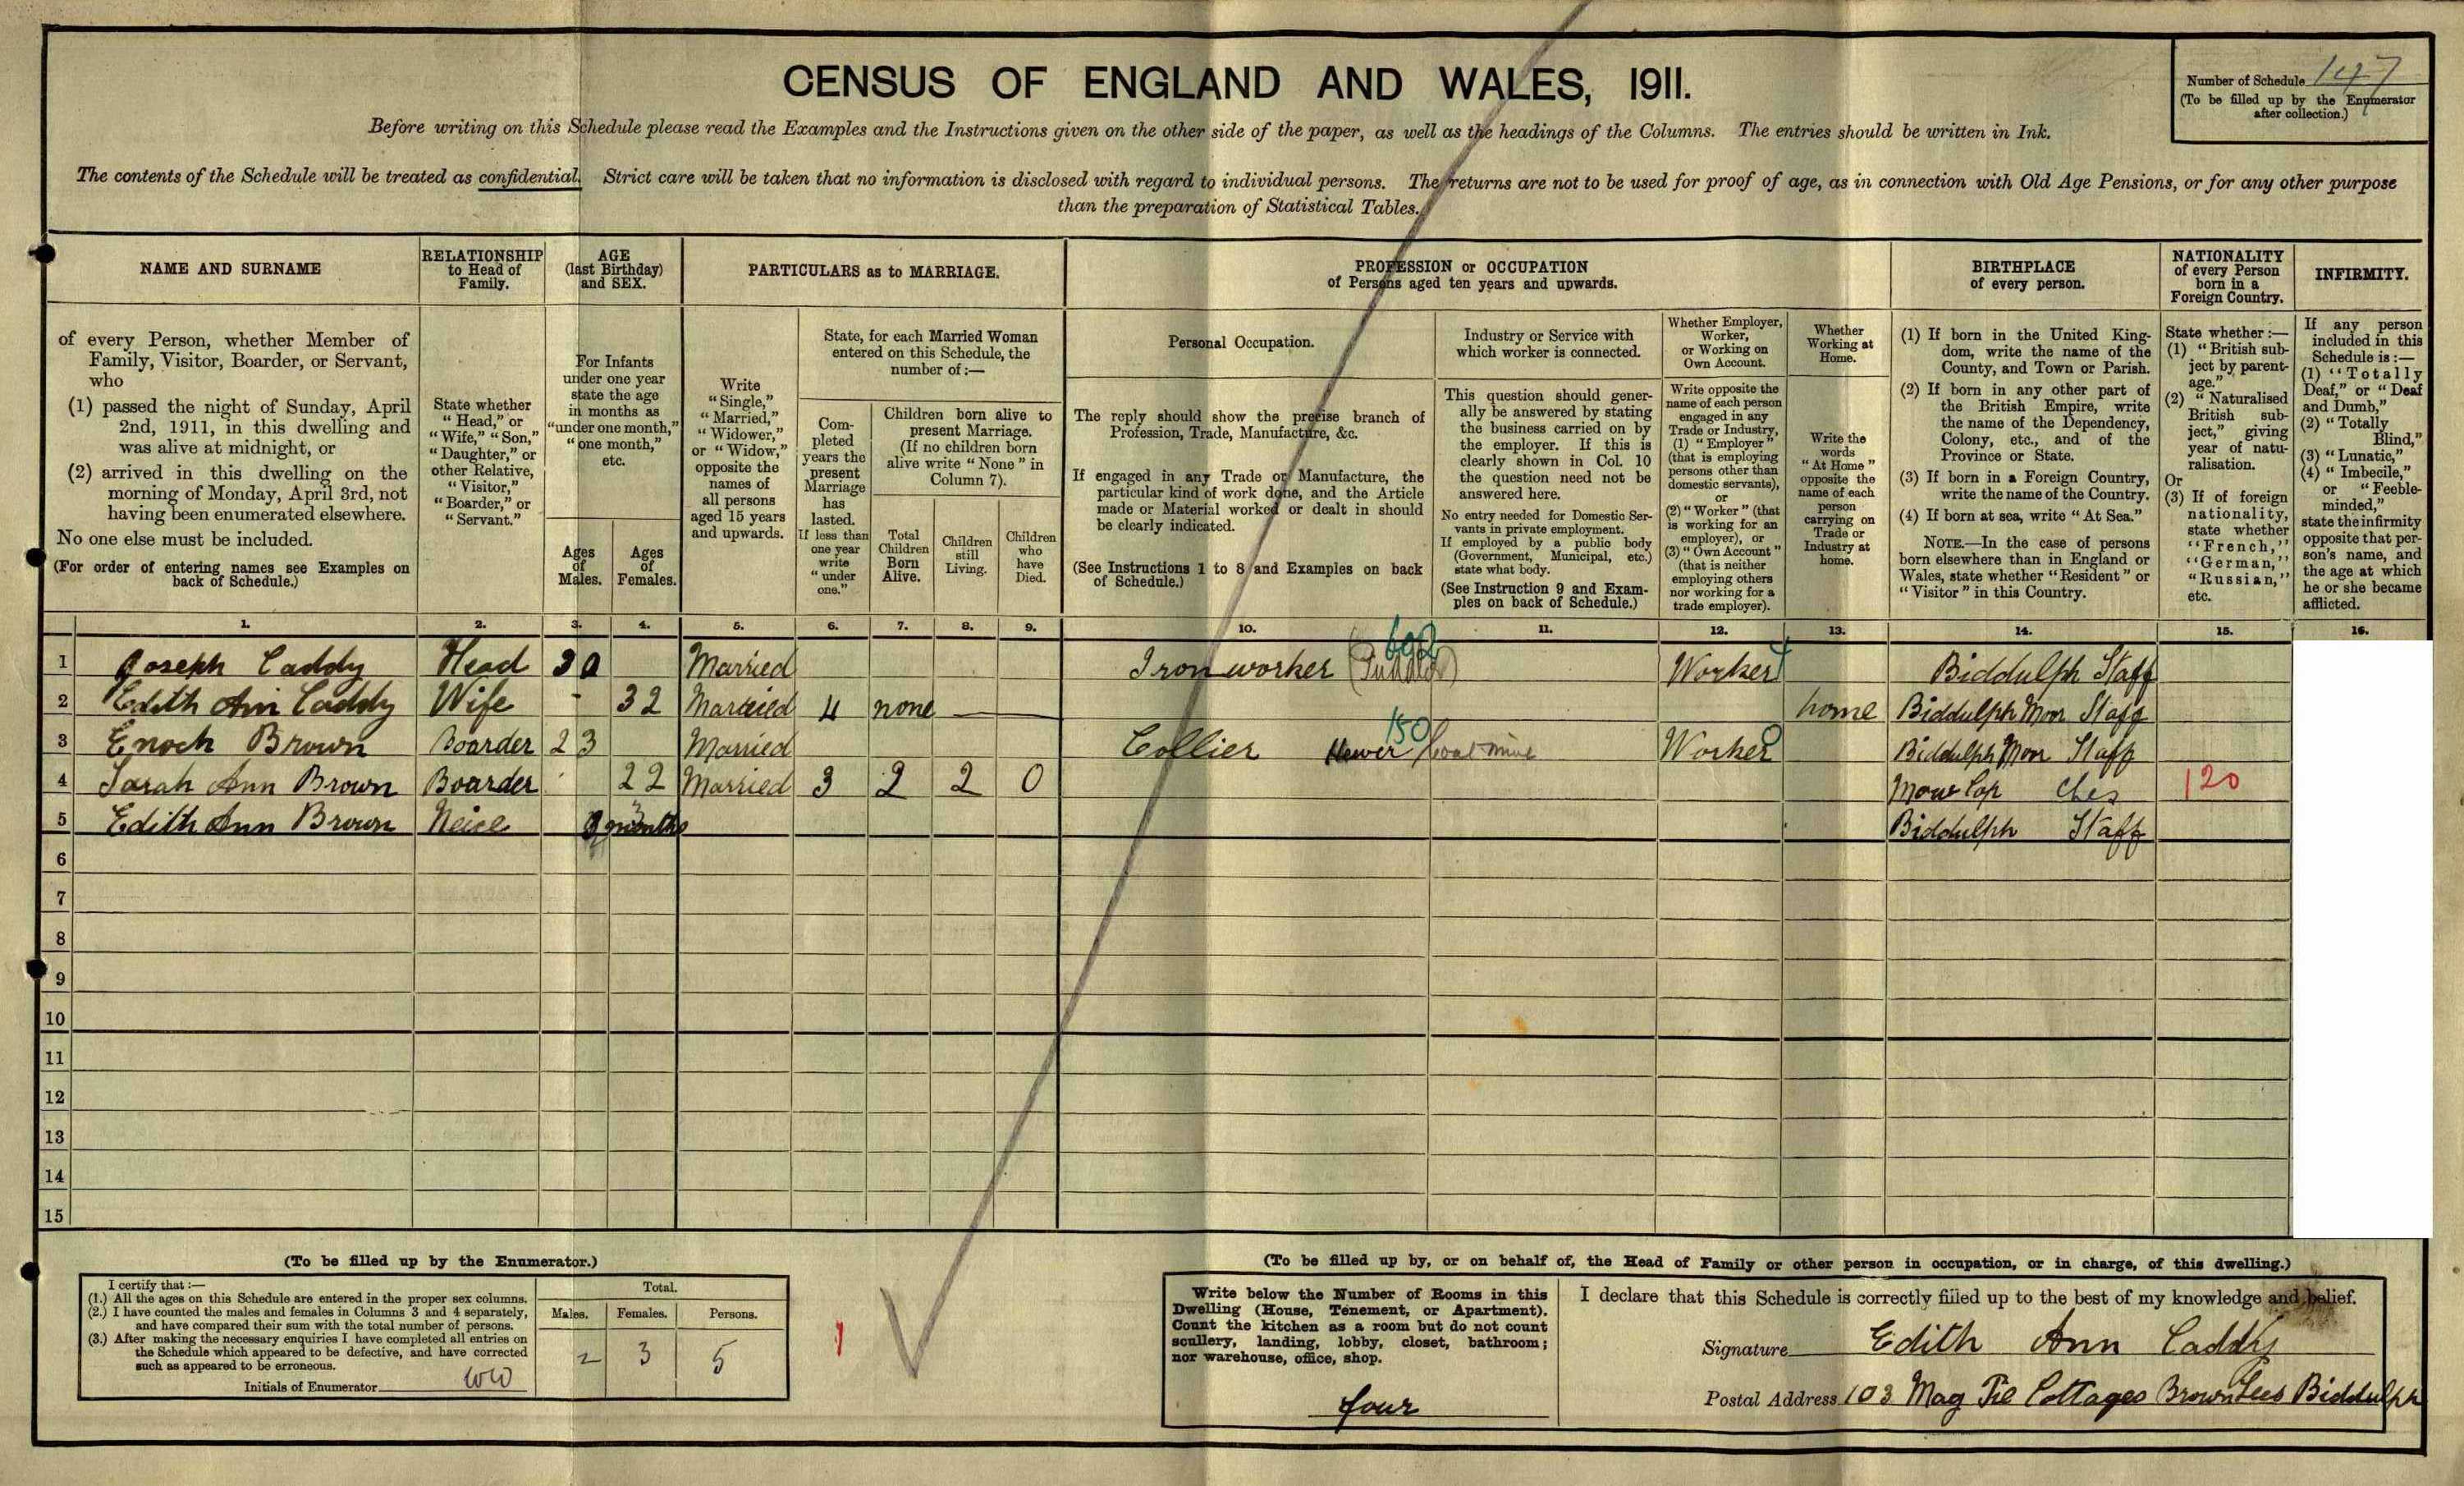 CENSUS OF ENGLAND AND WALES, 1911.
Number of Schedule 147
(To be filled up by the Enumerator
after collection.)
Before writing on this Schedule please read the Examples and the Instructions given on the other side of the paper, as well as the headings of the Columns. The entries should be written in Ink.
The contents of the Schedule will be treated as confidential. Strict care will be taken that no information is disclosed with regard to individual persons. The returns are not to be used for proof of age, as in connection with Old Age Pensions, or for any other purpose
than the preparation of Statistical Tables.
NAME AND SURNAME
of every Person, whether Member of
Family, Visitor, Boarder, or Servant,
who
(1) passed the night of Sunday, April
2nd, 1911, in this dwelling and
was alive at midnight, or
(2) arrived in this dwelling on the
morning of Monday, April 3rd, not
having been enumerated elsewhere.
No one else must be included.
(For order of entering names see Examples on
back of Schedule.)
RELATIONSHIP
to Head of
Family.
State whether
"Head," or
"Wife," "Son,"
"Daughter," or
other Relative,
"Visitor,"
"Boarder," or
"Servant."
AGE
(last Birthday)
and SEX.
For Infants
under one year
state the age
in months as
"under one month,"
"one month,"
etc.
Ages
of
Males.
Ages
of
Females.
PARTICULARS as to MARRIAGE.
Write
"Single,"
"Married,"
"Widower,"
or "Widow,"
opposite the
names of
all persons
aged 15 years
and upwards.
State, for each Married Woman
entered on this Schedule, the
number of :—
Com-
pleted
years the
present
Marriage
has
lasted.
If less than
one year
write
"under
one."
Children born alive to
present Marriage.
(If no children born
alive write "None" in
Column 7).
Total
Children
Born
Alive.
Children
still
Living.
Children
who
have
Died.
PROFESSION or OCCUPATION
of Persons aged ten years and upwards.
Personal Occupation.
The reply should show the precise branch of
Profession, Trade, Manufacture, &c.
If engaged in any Trade or Manufacture, the
particular kind of work done, and the Article
made or Material worked or dealt in should
be clearly indicated.
(See Instructions 1 to 8 and Examples on back
of Schedule.)
Industry or Service with
which worker is connected.
This question should gener-
ally be answered by stating
the business carried on by
the employer. If this is
clearly shown in Col. 10
the question need not be
answered here.
No entry needed for Domestic Ser-
vants in private employment.
If employed by a public body
(Government, Municipal, etc.)
state what body.
(See Instruction 9 and Exam-
ples on back of Schedule.)
Whether Employer,
Worker,
or Working on
Own Account.
Write opposite the
name of each person
engaged in any
Trade or Industry,
(1) "Employer"
(that is employing
persons other than
domestic servants),
or
(2) "Worker" (that
is working for an
employer), or
(3) "Own Account"
(that is neither
employing others
nor working for a
trade employer).
Whether
Working at
Home.
Write the
words
"At Home"
opposite the
name of each
person
carrying on
Trade or
Industry at
home.
BIRTHPLACE
of every person.
(1) If born in the United King-
dom, write the name of the
County, and Town or Parish.
(2) If born in any other part of
the British Empire, write
the name of the Dependency,
Colony, etc., and of the
Province or State.
(3) If born in a Foreign Country,
write the name of the Country.
(4) If born at sea, write "At Sea."
NOTE.—In the case of persons
born elsewhere than in England or
Wales, state whether "Resident" or
"Visitor" in this Country.
NATIONALITY
of every Person
born in a
Foreign Country.
State whether :—
(1) "British sub-
ject by parent-
age."
(2) "Naturalised
British sub-
ject," giving
year of natu-
ralisation.
Or
(3) If of foreign
nationality,
state whether
"French,"
"German,"
"Russian,"
etc.
INFIRMITY.
If any person
included in this
Schedule is :—
(1) "Totally
Deaf," or "Deaf
and Dumb,"
(2) "Totally
Blind,"
(3) "Lunatic,"
(4) "Imbecile,"
or "Feeble-
minded,"
state the infirmity
opposite that per-
son's name, and
the age at which
he or she became
afflicted.
1. 2. 3. 4. 5. 6. 7. 8. 9. 10. 11. 12. 13. 14. 15. 16.
1 Joseph Caddy Head 30 Married Iron worker (Puddler) 692 Worker Biddulph Staff
2 Edith Ann Caddy Wife - 32 Married 4 none — home Biddulph Moor Staff
3 Enoch Brown Boarder 23 Married Collier Hewer Coal Mine 150 Worker Biddulph Moor Staff
4 Sarah Ann Brown Boarder 22 Married 3 2 2 0 Mow Cop Ches 120
5 Edith Ann Brown Neice 3 months Biddulph Staff
6
7
8
9
10
11
12
13
14
15
(To be filled up by the Enumerator.)
I certify that :—
(1.) All the ages on this Schedule are entered in the proper sex columns.
(2.) I have counted the males and females in Columns 3 and 4 separately,
and have compared their sum with the total number of persons.
(3.) After making the necessary enquiries I have completed all entries on
the Schedule which appeared to be defective, and have corrected
such as appeared to be erroneous.
Initials of Enumerator
Total.
Males. Females. Persons.
2 3 5
(To be filled up by, or on behalf of, the Head of Family or other person in occupation, or in charge, of this dwelling.)
Write below the Number of Rooms in this
Dwelling (House, Tenement, or Apartment).
Count the kitchen as a room but do not count
scullery, landing, lobby, closet, bathroom;
nor warehouse, office, shop.
four
I declare that this Schedule is correctly filled up to the best of my knowledge and belief.
Signature Edith Ann Caddy
Postal Address 103 Mag Pie Cottages Brown Lees Biddulph